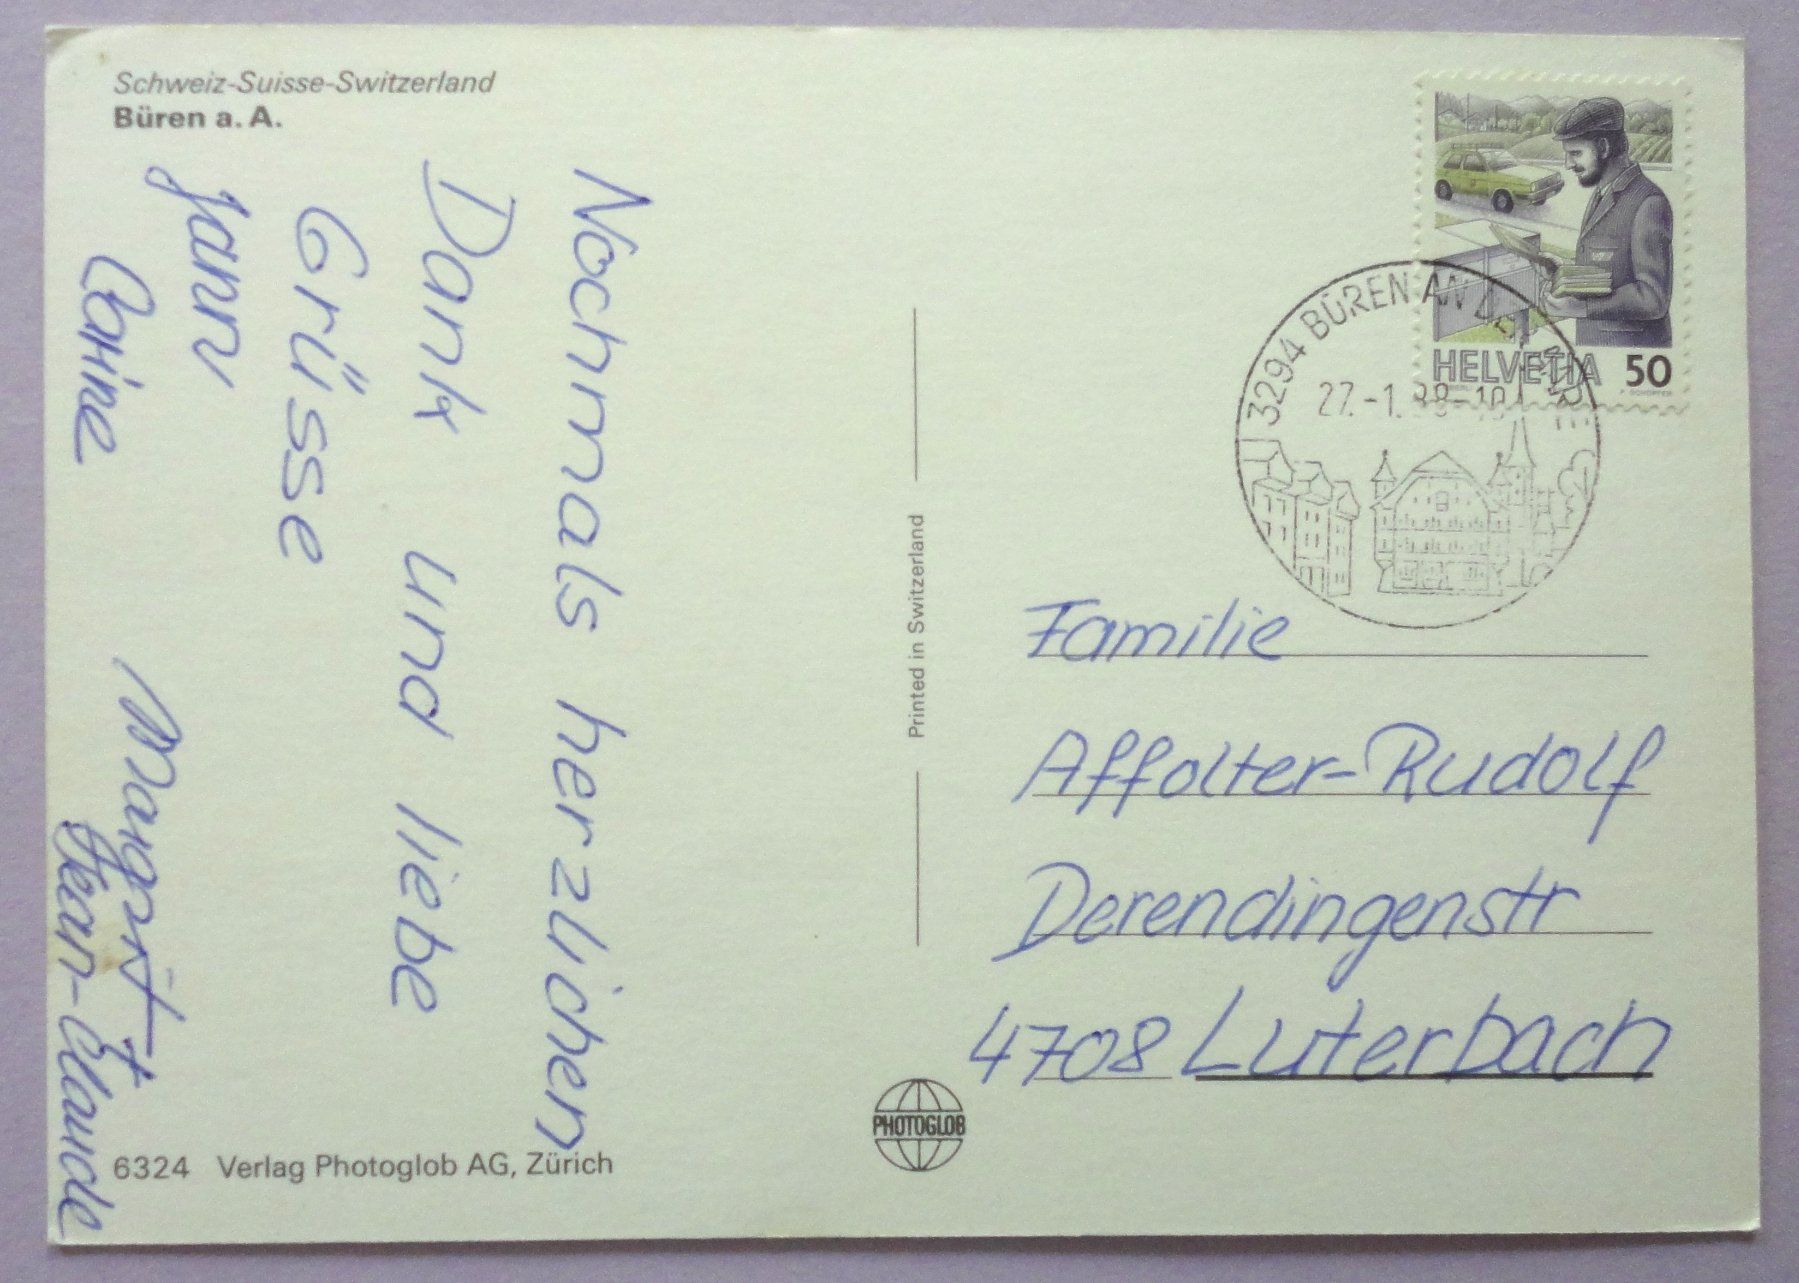 Schweiz-Suisse-Switzerland
Büren a. A.
Nochmals herzlichen
Dank und liebe
Grüsse
Jann Margrit
Corine Jean-Claude
6324 Verlag Photoglob AG, Zürich
Printed in Switzerland
PHOTOGLOB
HELVETIA 50
3294 BÜREN AN DER
27.-1.88-
Familie
Affolter-Rudolf
Derendingenstr
4708 Luterbach